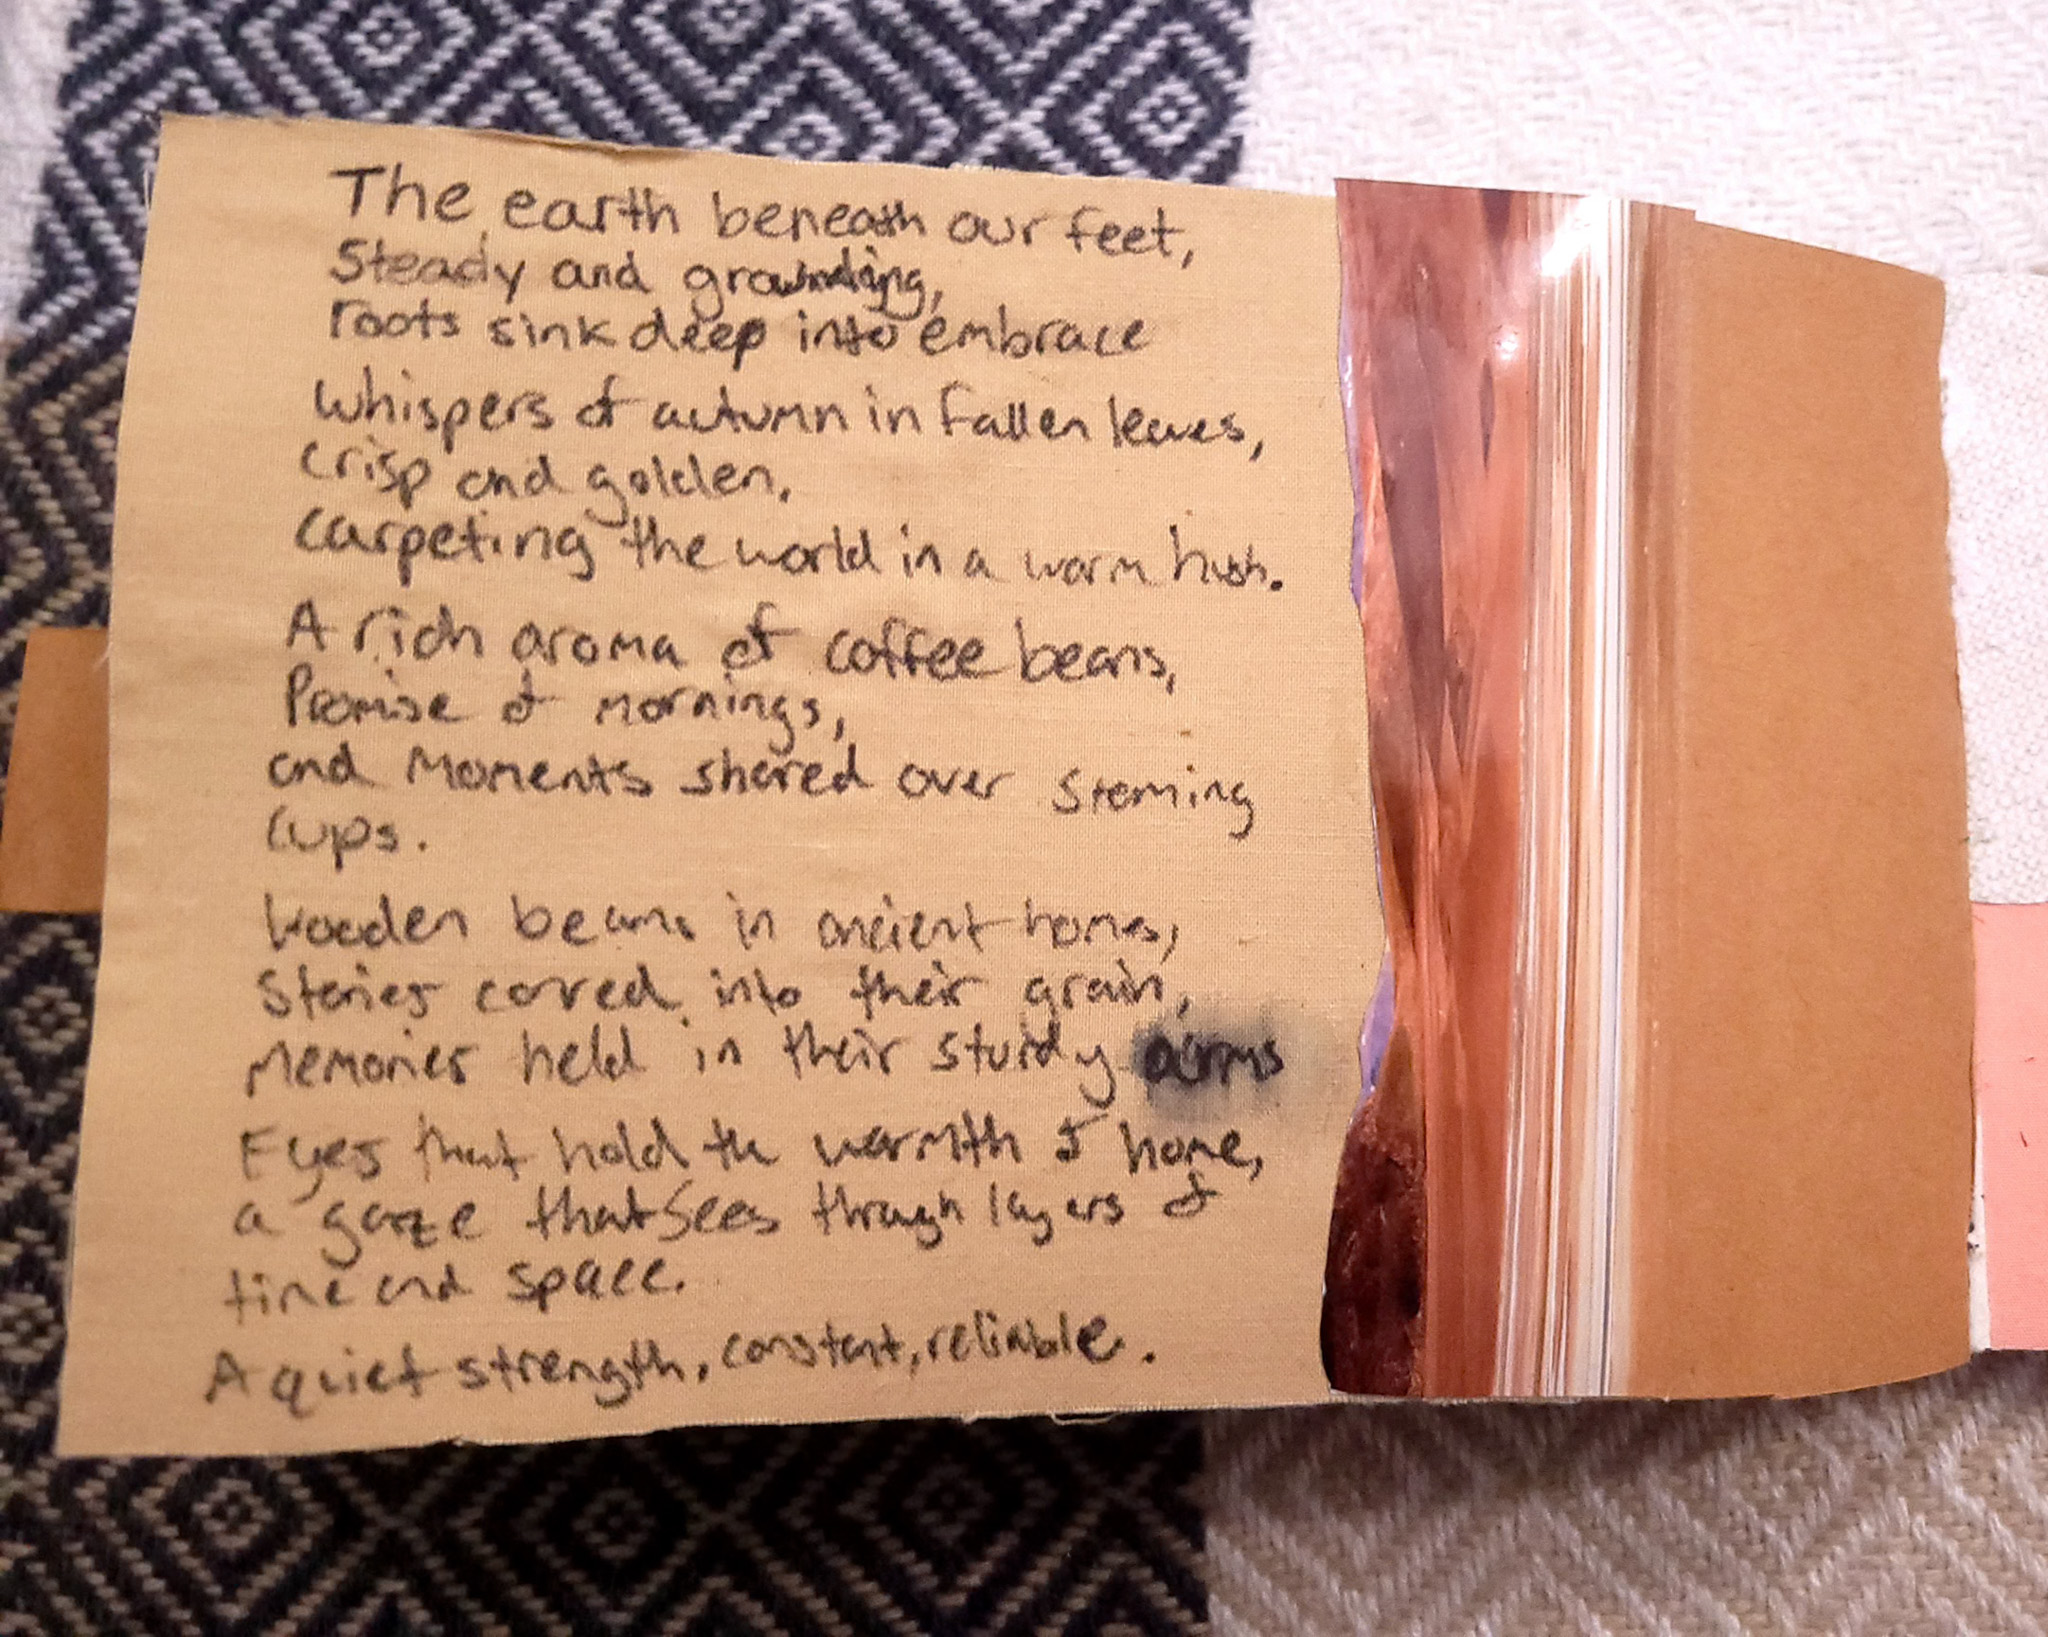 The earth beneath our feet,
Steady and grounding,
roots sink deep into embrace
Whispers of autumn in fallen leaves,
crisp and golden,
carpeting the world in a warm hush.
A rich aroma of coffee beans,
Promise of mornings,
and Moments shared over steming
cups.
Wooden beams in ancient homes,
Stories carved into their grain,
Memories held in their sturdy arms
Eyes that hold the warmth of home,
a gaze that sees through layers of
time and space.
A quiet strength, constant, reliable.